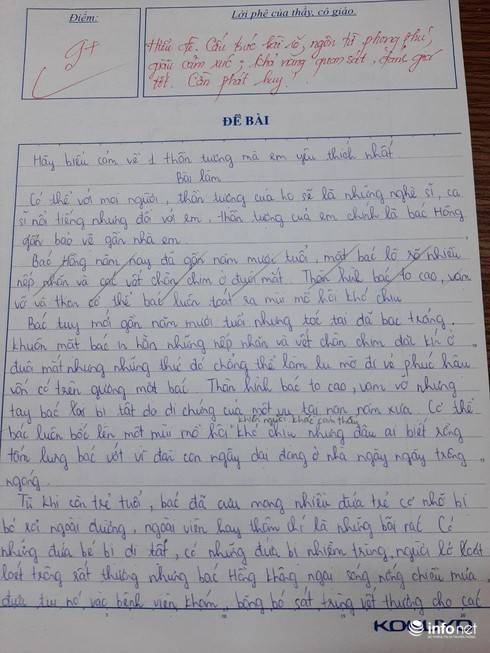 Điểm:
Lời phê của thầy, cô giáo.
9+
Hiểu đề. Cấu trúc bài rõ, ngôn từ phong phú,
giàu cảm xúc; khả năng quan sát, đánh giá
tốt. Cần phát huy!
ĐỀ BÀI
Hãy biểu cảm về 1 thần tượng mà em yêu thích nhất
Bài làm
Có thể với mọi người, thần tượng của họ sẽ là những nghệ sĩ, ca
sĩ nổi tiếng nhưng đối với em, thần tượng của em chính là bác Hồng
gần bảo vệ gần nhà em.
Bác Hồng năm nay đã gần năm mươi tuổi, mặt bác lộ rõ nhiều
nếp nhăn và các vết chân chim ở đuôi mắt. Thân hình bác to cao, vạm
vỡ và thân cơ thể bác luôn toát ra mùi mồ hôi khó chịu
Bác tuy mới gần năm mươi tuổi nhưng tóc tai đã bạc trắng,
khuôn mặt bác in hằn những nếp nhăn và vết chân chim dài kín ở
đuôi mắt nhưng những thứ đó chẳng thể làm lu mờ đi vẻ phúc hậu
vốn có trên gương mặt bác. Thân hình bác to cao, vạm vỡ nhưng
tay bác lại bị tật do di chứng của một vụ tai nạn năm xưa. Cơ thể
bác luôn bốc lên một mùi mồ hôi khiến người khác cảm thấy khó chịu nhưng đâu ai biết rằng
tấm lưng bác ướt vì đàn con ngây dại đang ở nhà ngày ngày trông
ngóng.
Từ khi còn trẻ tuổi, bác đã cưu mang nhiều đứa trẻ cơ nhỡ bị
bỏ rơi ngoài đường, ngoài viện hay thậm chí là những bãi rác. Có
những đứa bé bị dị tật, có những đứa bị nhiễm trùng, người lở loét
loét trông rất thương nhưng bác Hồng không ngại sáng, nóng chiều mưa
đưa tụi nó vào bệnh viện khám, băng bó sát trùng vết thương cho các
KOKUYO
infonet